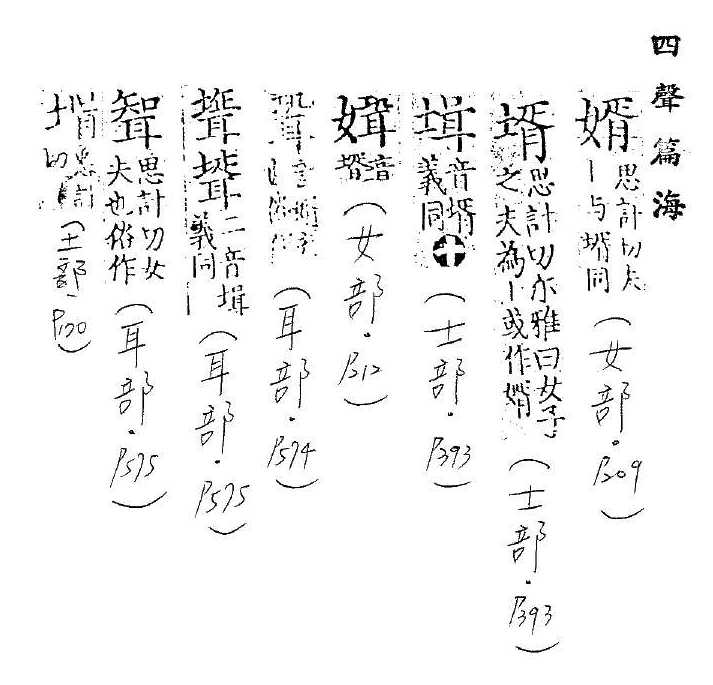 四聲篇海
婿思計切夫丨与壻同（女部．P.209）
壻思計切尔雅曰女子之夫為丨或作婿（士部．P.393）
音壻義同（士部．P.393）
音壻（女部．P.212）
（耳部．P.574）
二音義同（耳部．P.575）
思計切女夫也俗作（耳部．P.575）
思計切（土部．P.120）